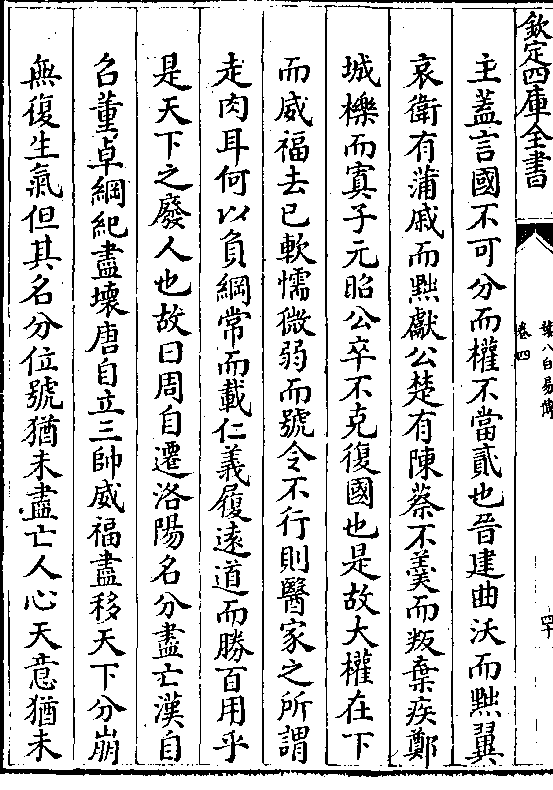 欽定四庫全書
葉八白易傳
卷四
四十
主蓋言國不可分而權不當貳也晉建曲沃而黜翼
哀衛有蒲戚而黜獻公楚有陳蔡不羮而叛棄疾鄭
城櫟而寘子元昭公卒不克復國也是故大權在下
而威福去已軟懦微弱而號令不行則醫家之所謂
走肉耳何以負綱常而載仁義履逺道而勝百用乎
是天下之廢人也故曰周自遷洛陽名分盡亡漢自
召董卓綱紀盡壞唐自立三帥威福盡移天下分崩
無復生氣但其名分位號猶未盡亡人心天意猶未